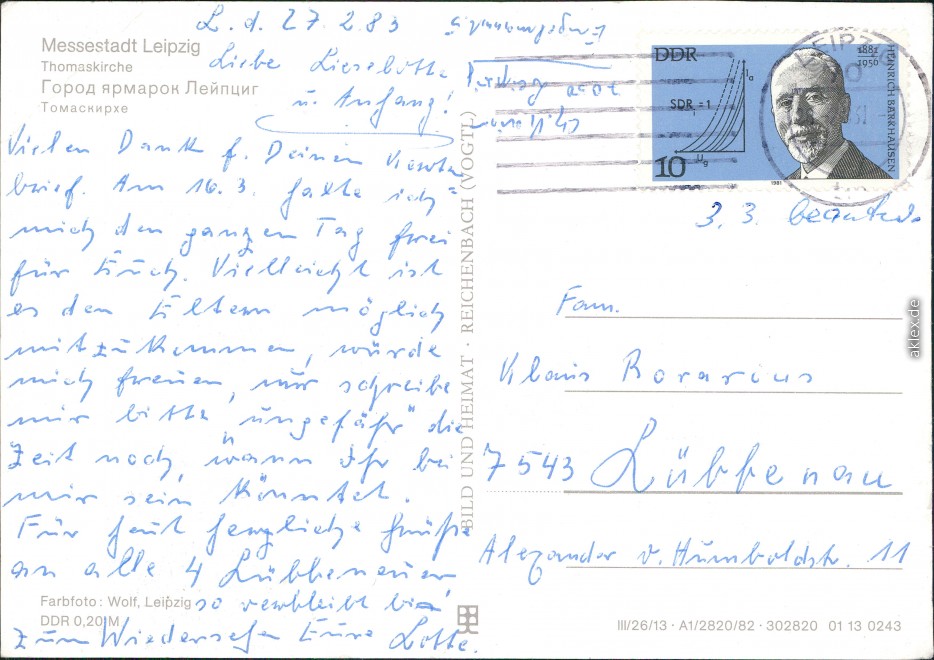 L. d. 27. 2. 83
Messestadt Leipzig
Thomaskirche
Город ярмарок Лейпциг
Томаскирхе
Liebe Lieselotte
u. Anhang!
Vielen Dank f. Deinen
brief. Am 16. 3. halte ich
mich den ganzen Tag frei
für Euch. Vielleicht ist
es den Eltern möglich
mitzukommen, würde
mich freuen, nur schreibe
mir bitte "ungefähr" die
Zeit noch, wann Ihr bei
mir sein könntet.
Für heut herzliche Grüße
an alle 4 Lübbenauer
so verbleibt bis
zum Wiedersehn Eure Lotte.
Farbfoto: Wolf, Leipzig
DDR 0,20 M
BILD UND HEIMAT · REICHENBACH (VOGTL.)
DDR
SDR =1
Ia
Ug
10
1981
1881
1956
HEINRICH BARKHAUSEN
LEIPZIG
3. 3.
Fam.
Klaus Rorarius
7543 Lübbenau
Alexander v. Humboldtstr. 11
III/26/13 · A1/2820/82 · 302820 01 13 0243
aklex.de